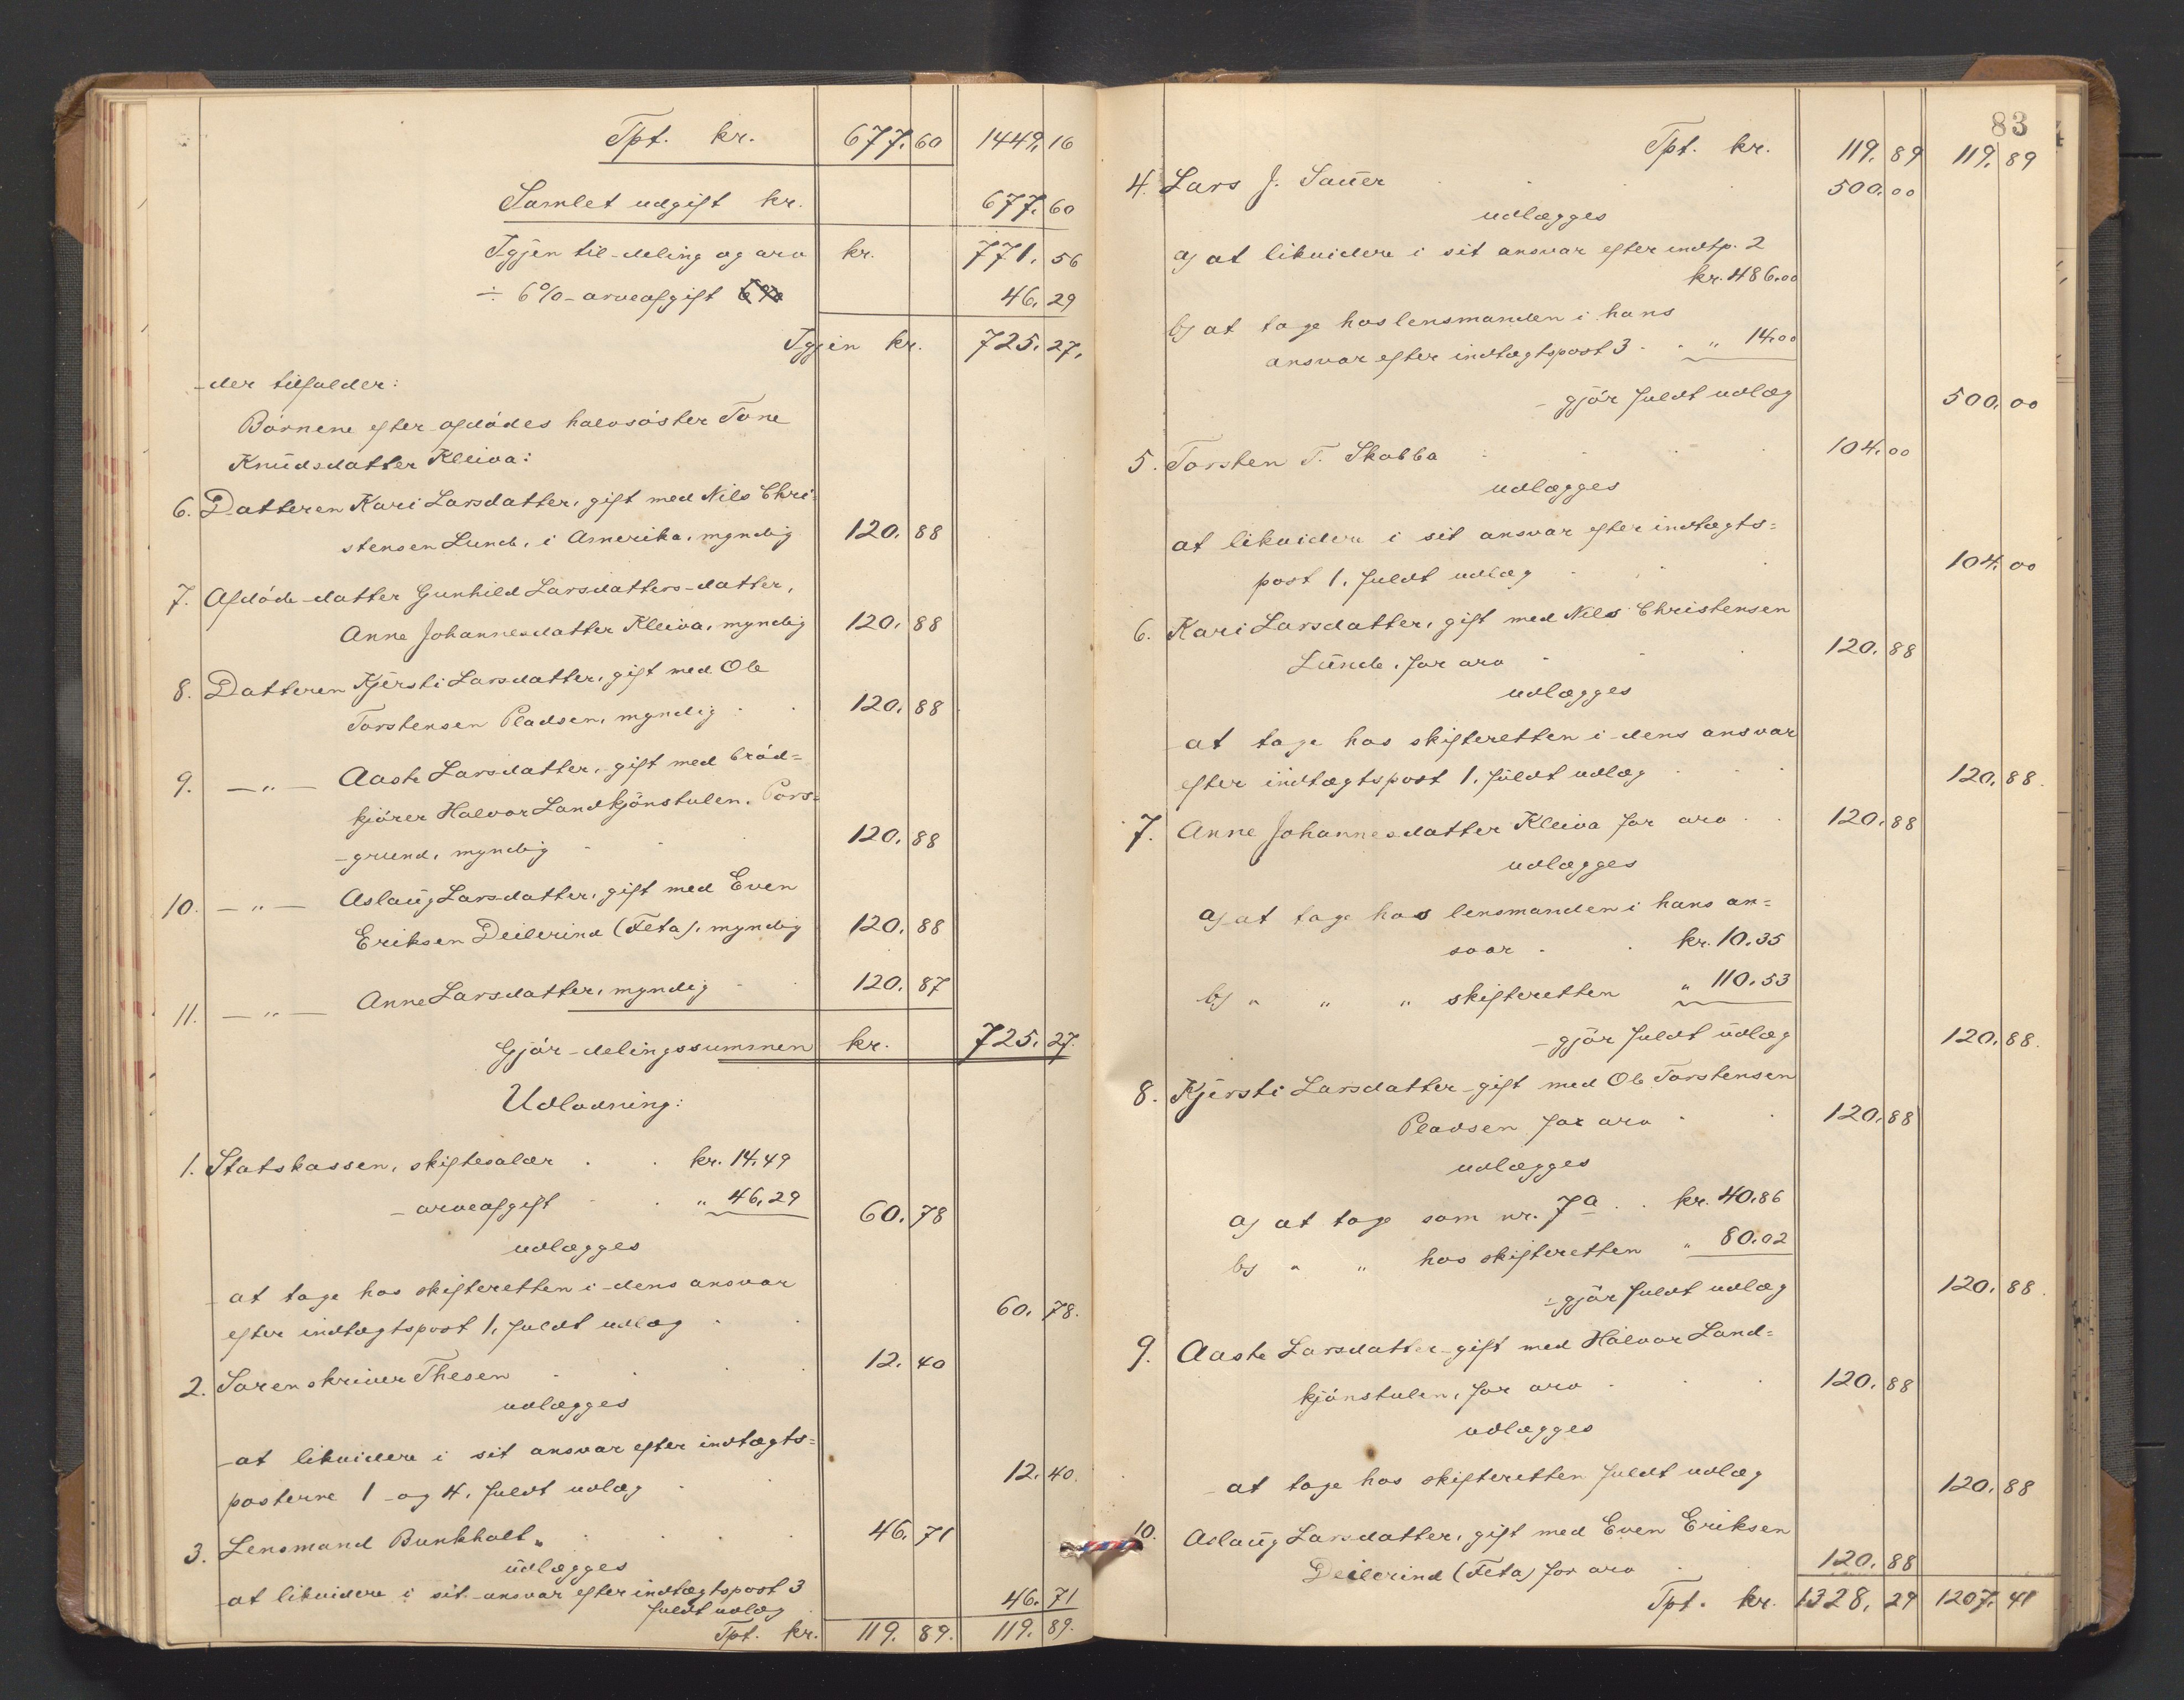 Tpt. kr. 677.60 1449.16
Samlet udgift kr. 677.60
Igjen til deling og arv kr. 771.56
÷ 6% arveafgift 6% 46.29
Igjen kr. 725.27.
der tilfalder:
Børnene efter afdødes halvsøster Tone
Knudsdatter Kleiva:
6. Datteren Kari Larsdatter, gift med Nils Chri-
stensen Lunde, i Amerika, myndig 120.88
7. Afdøde datter Gunhild Larsdatters datter,
Anne Johannesdatter Kleiva, myndig 120.88
8. Datteren Kjersti Larsdatter, gift med Ole
Torstensen Pladsen, myndig 120.88
9. —"— Aaste Larsdatter, gift med brød=
kjører Halvor Landkjønstulen, Pors=
grund, myndig 120.88
10. —"— Aslaug Larsdatter, gift med Even
Eriksen Deilerind (Feta), myndig 120.88
11. —"— Anne Larsdatter, myndig 120.87
Gjør delingssummen kr. 725.27.
Udlodning:
1. Statskassen, skiftesalær kr. 14.49
arveafgift " 46.29 60.78
udlægges
at tage hos skifteretten i dens ansvar
efter indtægtspost 1. fuldt udlæg 60.78.
2. Sorenskriver Thesen 12.40
udlægges
at likvidere i sit ansvar efter indtægts=
posterne 1 og 4. fuldt udlæg 12.40.
3. Lensmand Bunkholt 46.71
udlægges
at likvidere i sit ansvar efter indtægtspost 3
fuldt udlæg 46.71
Tpt. kr. 119.89. 119.89.
83
Tpt. kr. 119.89 119.89
4. Lars J. Sauer 500.00
udlægges
a) at likvidere i sit ansvar efter indtp. 2
kr. 486.00
b) at tage hos lensmanden i hans
ansvar efter indtægtspost 3 " 14.00
gjør fuldt udlæg 500.00
5. Torsten T. Skobba 104.00
udlægges
at likvidere i sit ansvar efter indtægts=
post 1. fuldt udlæg 104.00
6. Kari Larsdatter, gift med Nils Christensen
Lunde, for arv 120.88
udlægges
at tage hos skifteretten i dens ansvar
efter indtægtspost 1. fuldt udlæg 120.88.
7. Anne Johannesdatter Kleiva for arv 120.88
udlægges
a) at tage hos lensmanden i hans an=
svar kr. 10.35
b) " " " skifteretten " 110.53
gjør fuldt udlæg 120.88.
8. Kjersti Larsdatter gift med Ole Torstensen
Pladsen for arv 120.88
udlægges
a) at tage som nr. 7a kr. 40.86
b) " " hos skifteretten " 80.02
gjør fuldt udlæg 120.88.
9. Aaste Larsdatter gift med Halvor Land=
kjønstulen, for arv 120.88
udlægges
at tage hos skifteretten fuldt udlæg 120.88
10. Aslaug Larsdatter, gift med Even Eriksen
Deilerind (Feta) for arv 120.88
Tpt. kr. 1328.29 1207.41